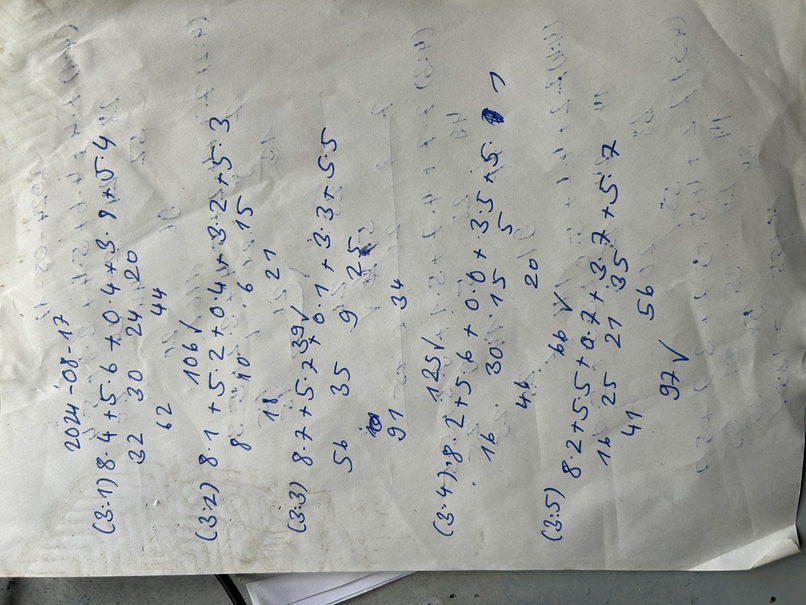 2024-08-17
(3:1) 8·4+5·6+0·4+3·8+5·4
32 30 24 20
62 44
106√
(3:2) 8·1+5·2+0·4+3·2+5·3
8 10 6 15
18 21
39√
(3:3) 8·7+5·7+0·1+3·3+5·5
56 35 9 25
91 34
125√
(3:4) 8·2+5·6+0·0+3·5+5·1
16 30 15 5
46 20
66√
(3:5) 8·2+5·5+0·7+3·7+5·7
16 25 21 35
41 56
97√